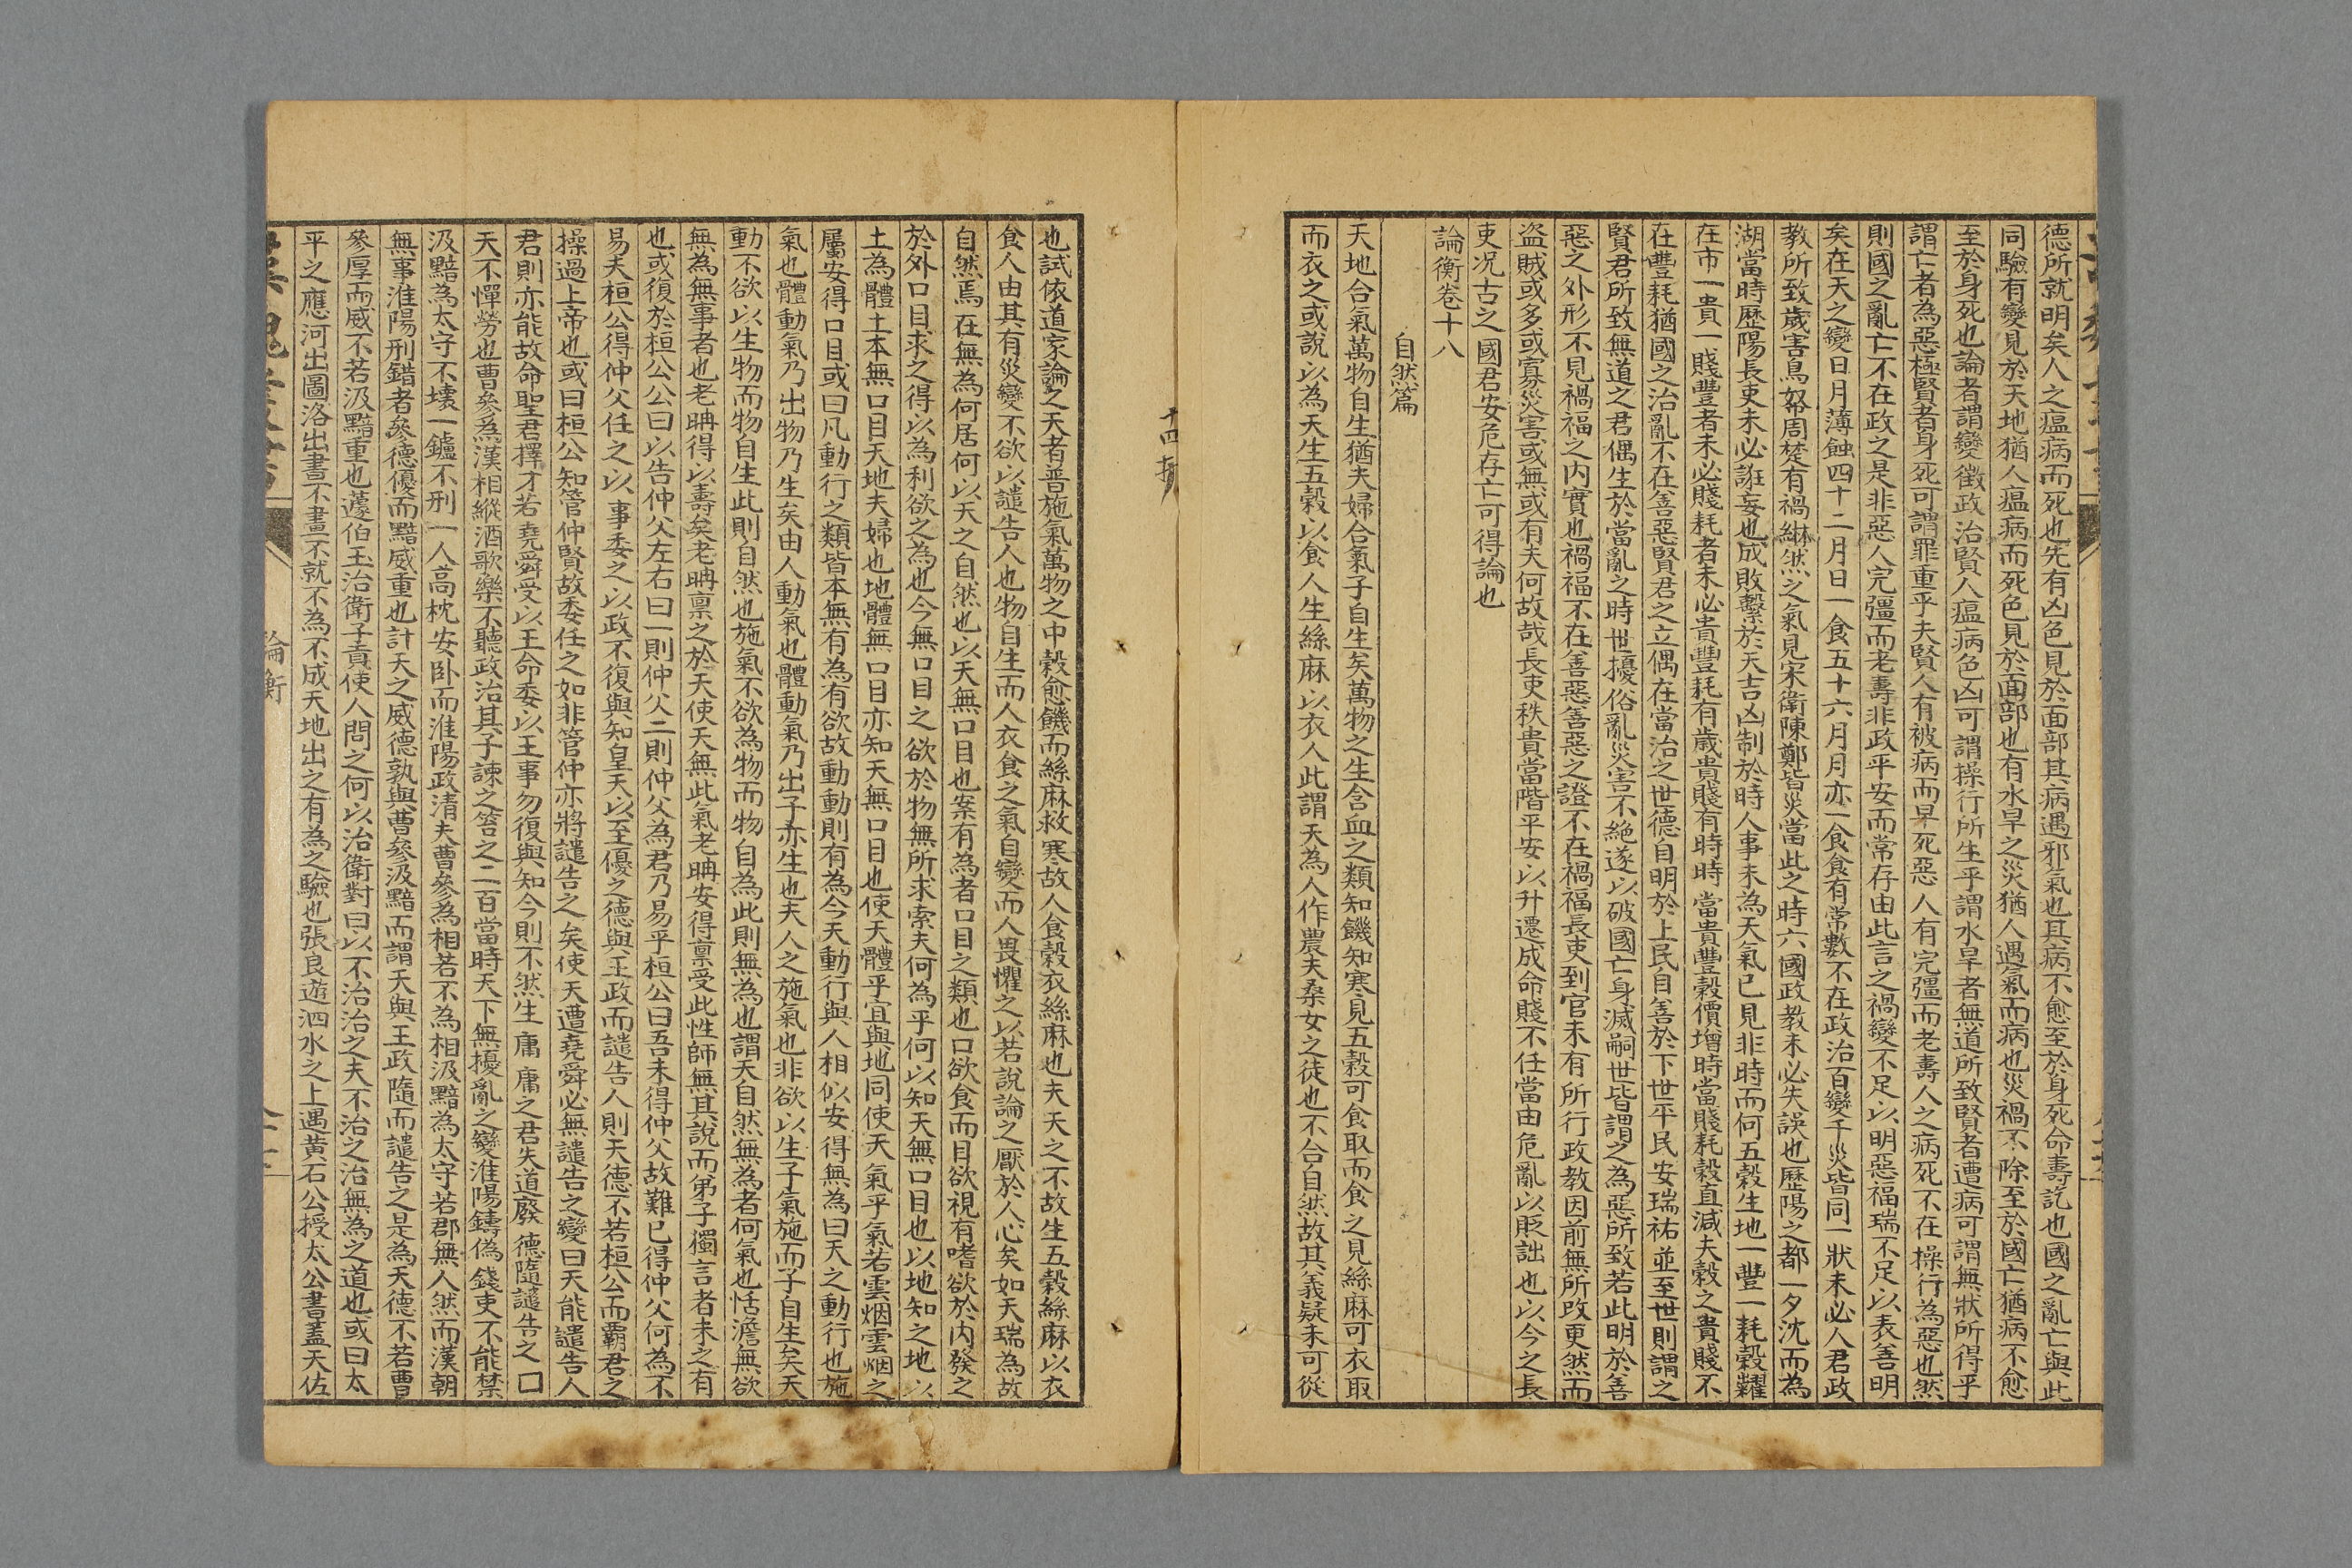 德所就明矣人之瘟病而死也先有凶色見於面部其病遇邪氣也其病不愈至於身死命壽訖也國之亂亡與此
同驗有變見於天地猶人瘟病而死色見於面部也有水旱之災猶人遇氣而病也災禍不除至於國亡猶病不愈
至於身死也論者謂變徵政治賢人瘟病色凶可謂操行所生乎謂水旱者無道所致賢者遭病可謂無狀所得乎
謂亡者為惡極賢者身死可謂罪重乎夫賢人有被病而早死惡人有完彊而老壽人之病死不在操行為惡也然
則國之亂亡不在政之是非惡人完彊而老壽非政平安而常存由此言之禍變不足以明惡福瑞不足以表善明
矣在天之變日月薄蝕四十二月日一食五十六月月亦一食食有常數不在政治百變千災皆同一狀未必人君政
教所致歲害鳥帑周楚有禍綝然之氣見宋衛陳鄭皆災當此之時六國政教未必失誤也歷陽之都一夕沈而為
湖當時歷陽長吏未必誑妄也成敗繫於天吉凶制於時人事未為天氣已見非時而何五穀生地一豐一耗穀糶
在市一貴一賤豐者未必賤耗者未必貴豐耗有歲貴賤有時時當貴豐穀價增時當賤耗穀直減夫穀之貴賤不
在豐耗猶國之治亂不在善惡賢君之立偶在當治之世德自明於上民自善於下世平民安瑞祐並至世則謂之
賢君所致無道之君偶生於當亂之時世擾俗亂災害不絕遂以破國亡身滅嗣世皆謂之為惡所致若此明於善
惡之外形不見禍福之內實也禍福不在善惡善惡之證不在禍福長吏到官未有所行政教因前無所改更然而
盜賊或多或寡災害或無或有夫何故哉長吏秩貴當階平安以升遷或命賤不任當由危亂以貶詘也以今之長
吏況古之國君安危存亡可得論也
論衡卷十八
自然篇
天地合氣萬物自生猶夫婦合氣子自生矣萬物之生含血之類知饑知寒見五穀可食取而食之見絲麻可衣取
而衣之或說以為天生五穀以食人生絲麻以衣人此謂天為人作農夫桑女之徒也不合自然故其義疑未可從
也試依道家論之天者普施氣萬物之中穀愈饑而絲麻救寒故人食穀衣絲麻也夫天之不故生五穀絲麻以衣
食人由其有災變不欲以譴告人也物自生而人衣食之氣自變而人畏懼之以若說論之厭於人心矣如天瑞為故
自然焉在無為何居何以天之自然也以天無口目也案有為者口目之類也口欲食而目欲視有嗜欲於內發之
於外口目求之得以為利欲之為也今無口目之欲於物無所求索夫何為乎何以知天無口目也以地知之地以
土為體土本無口目天地夫婦也地體無口目亦知天無口目也使天體乎宜與地同使天氣乎氣若雲烟雲烟之
屬安得口目或曰凡動行之類皆本無有為有欲故動動則有為今天動行與人相似安得無為曰天之動行也施
氣也體動氣乃出物乃生矣由人動氣也體動氣乃出子亦生也夫人之施氣也非欲以生子氣施而子自生矣天
動不欲以生物而物自生此則自然也施氣不欲為物而物自為此則無為也謂天自然無為者何氣也恬澹無欲
無為無事者也老聃得以壽矣老聃稟之於天使天無此氣老聃安得稟受此性師無其說而弟子獨言者未之有
也或復於桓公公曰以告仲父左右曰一則仲父二則仲父為君乃易乎桓公曰吾未得仲父故難已得仲父何為不
易夫桓公得仲父任之以事委之以政不復與知皇天以至優之德與王政而譴告人則天德不若桓公而霸君之
操過上帝也或曰桓公知管仲賢故委任之如非管仲亦將譴告之矣使天遭堯舜必無譴告之變曰天能譴告人
君則亦能故命聖君擇才若堯舜受以王命委以王事勿復與知今則不然生庸庸之君失道廢德隨譴告之□
天不憚勞也曹參為漢相縱酒歌樂不聽政治其子諫之笞之二百當時天下無擾亂之變淮陽鑄偽錢吏不能禁
汲黯為太守不壞一鑪不刑一人高枕安卧而淮陽政清夫曹參為相若不為相汲黯為太守若郡無人然而漢朝
無事淮陽刑錯者參德優而黯威重也計天之威德孰與曹參汲黯而謂天與王政隨而譴告之是為天德不若曹
參厚而威不若汲黯重也蘧伯玉治衛子貢使人問之何以治衛對曰以不治治之夫不治之治無為之道也或曰太
平之應河出圖洛出書不畫不就不為不成天地出之有為之驗也張良遊泗水之上遇黃石公授太公書蓋天佐
論衡